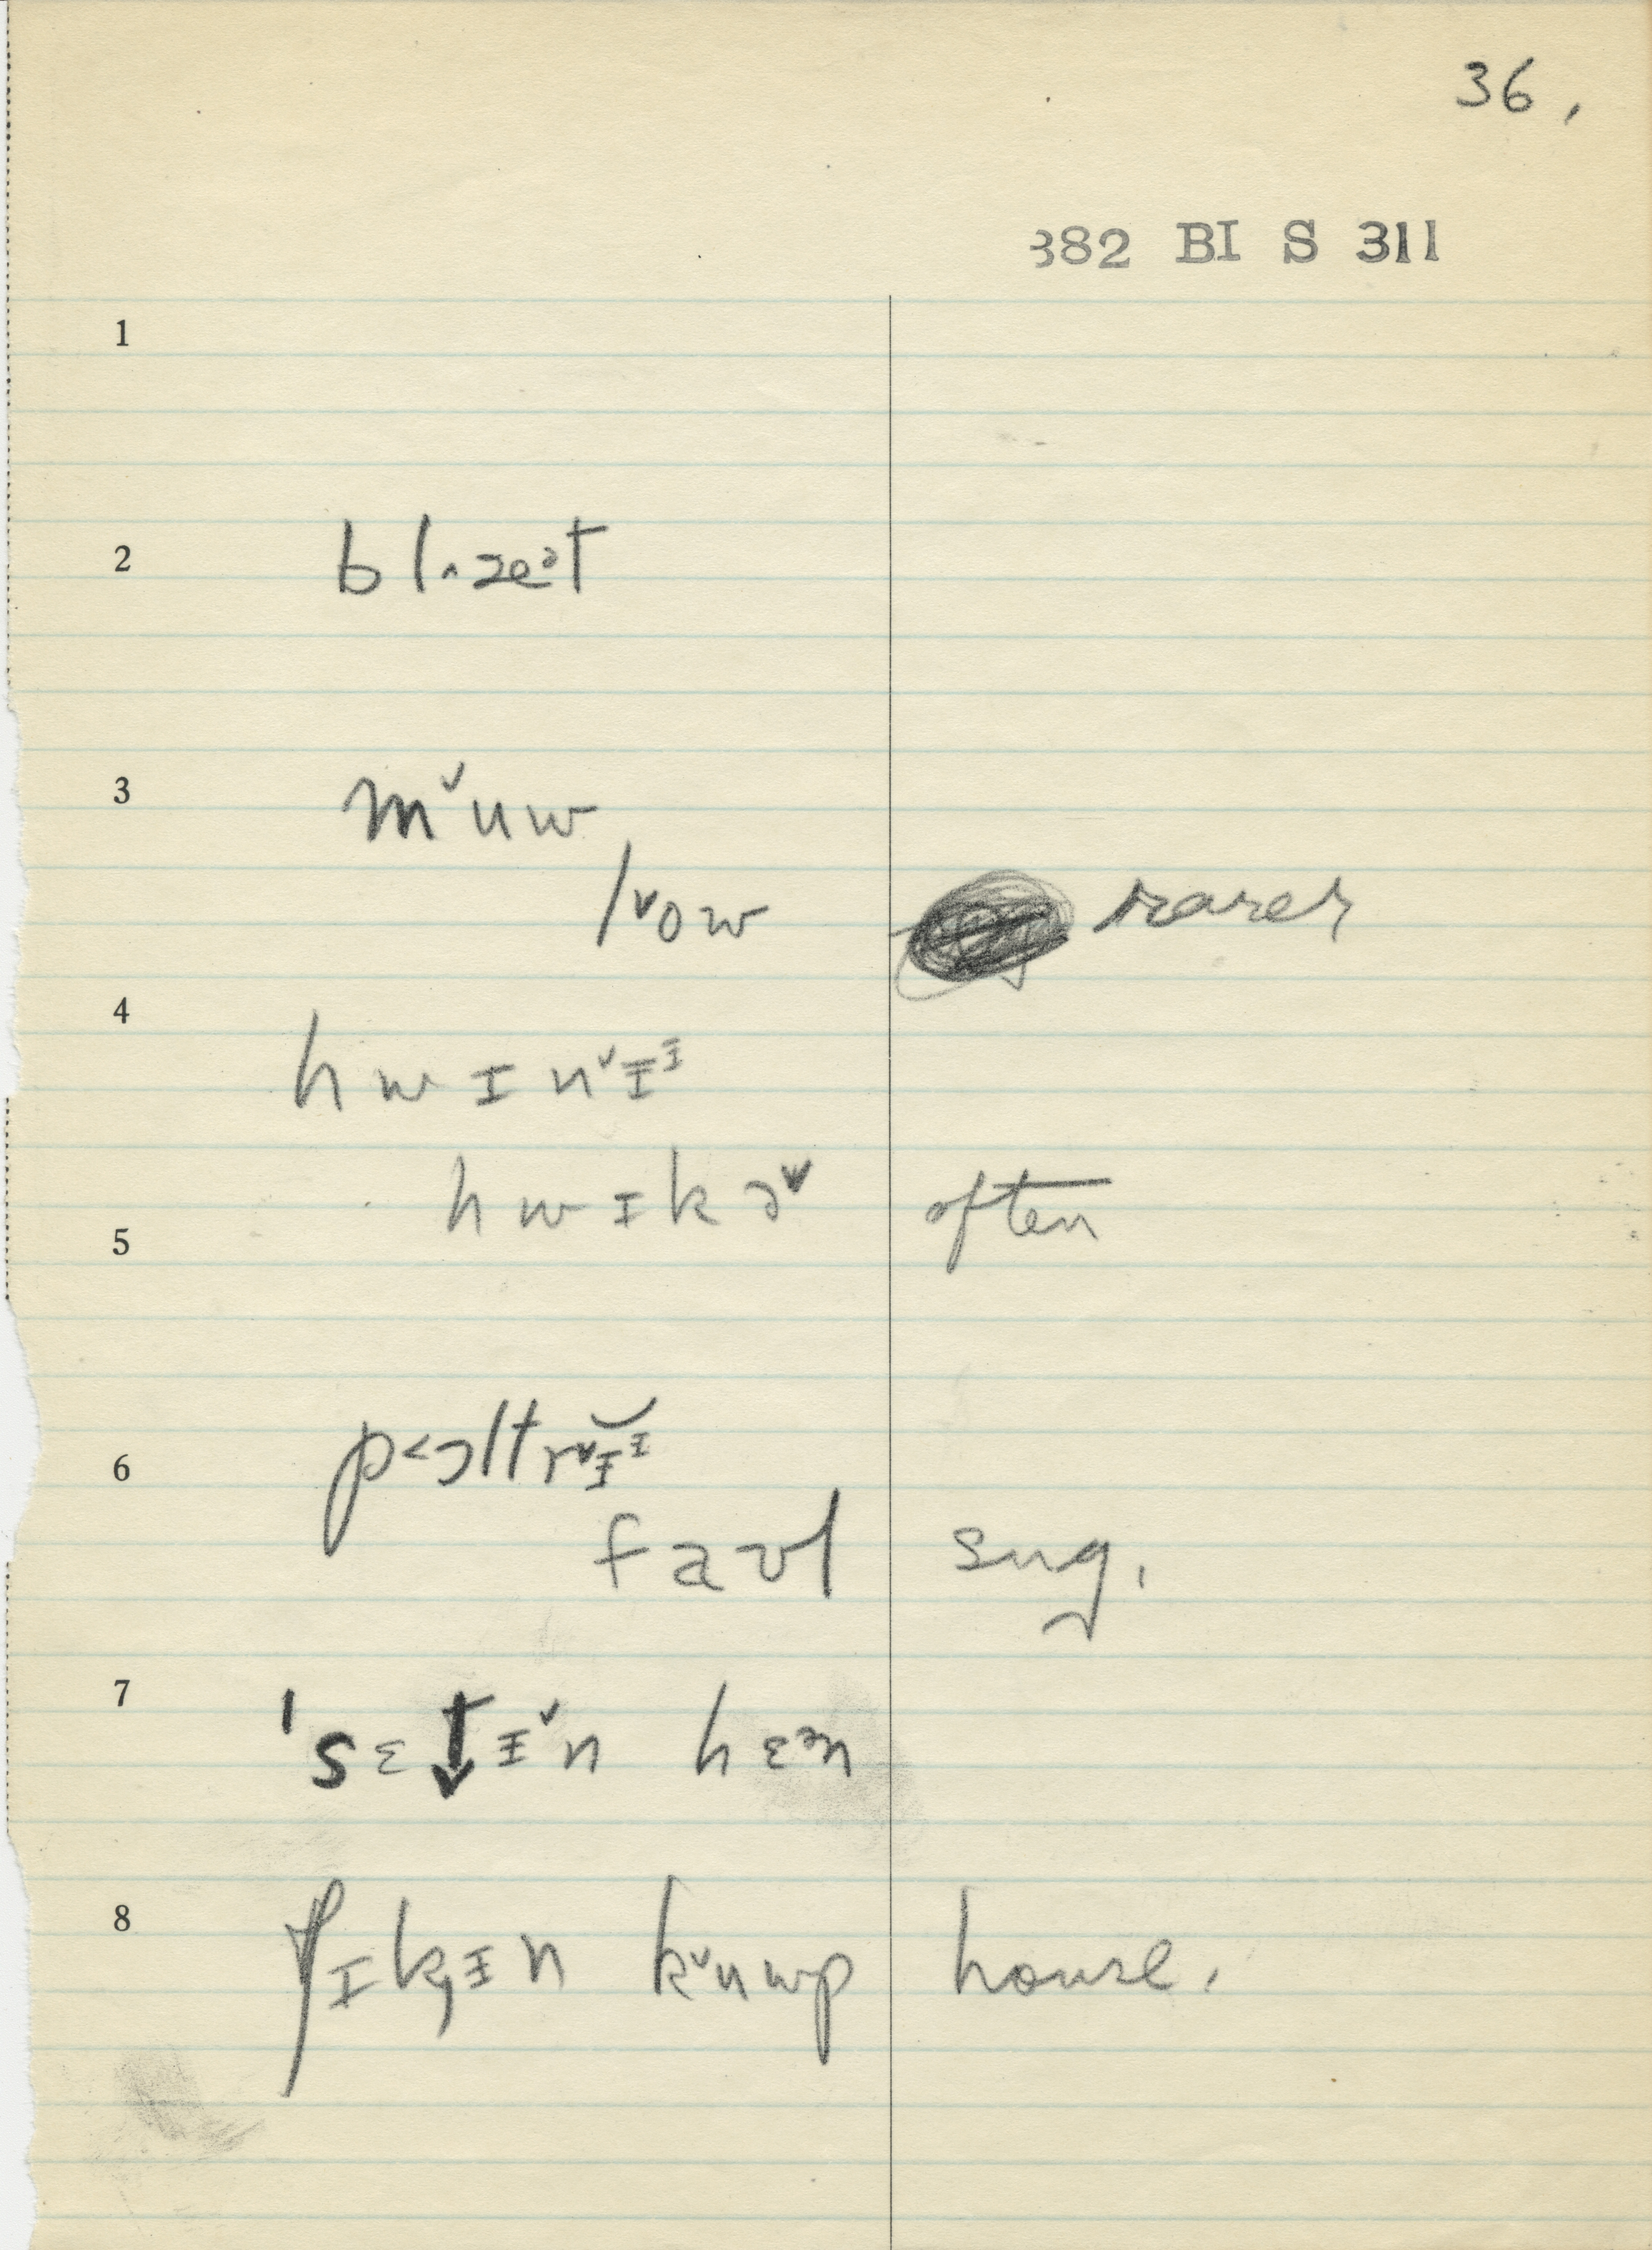 36.
382 BI S 311
1
2 bl‸zeᵊt
3 mˇuw
lˇow rarer
4 hwɪnˇɪᶦ
hwɪkəˇ often
5
6 p<ɔltrˇɪᶦ
faʊl sug.
7 'sɛt↓ɪˇn hɛᵊn
8 ʧɪk̡ɪn kˇuwp house.